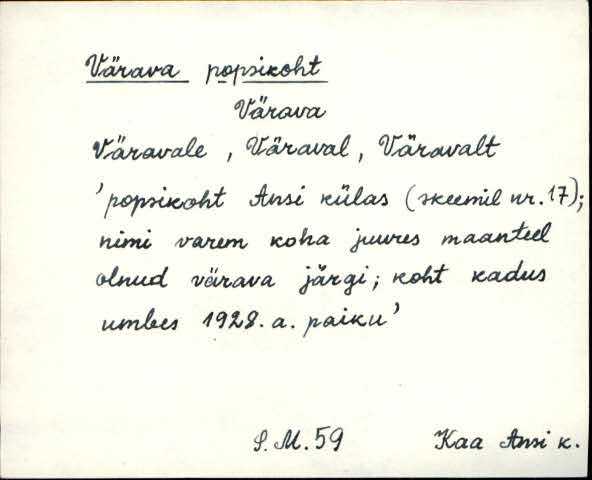 Värava popsikoht
Värava
Väravale, Väraval, Väravalt
'popsikoht Ansi külas (skeemil nr. 17);
nimi varem koha juures maanteel
olnud värava järgi; koht kadus
umbes 1928. a. paiku'
S. M. 59 Kaa Ansi k.